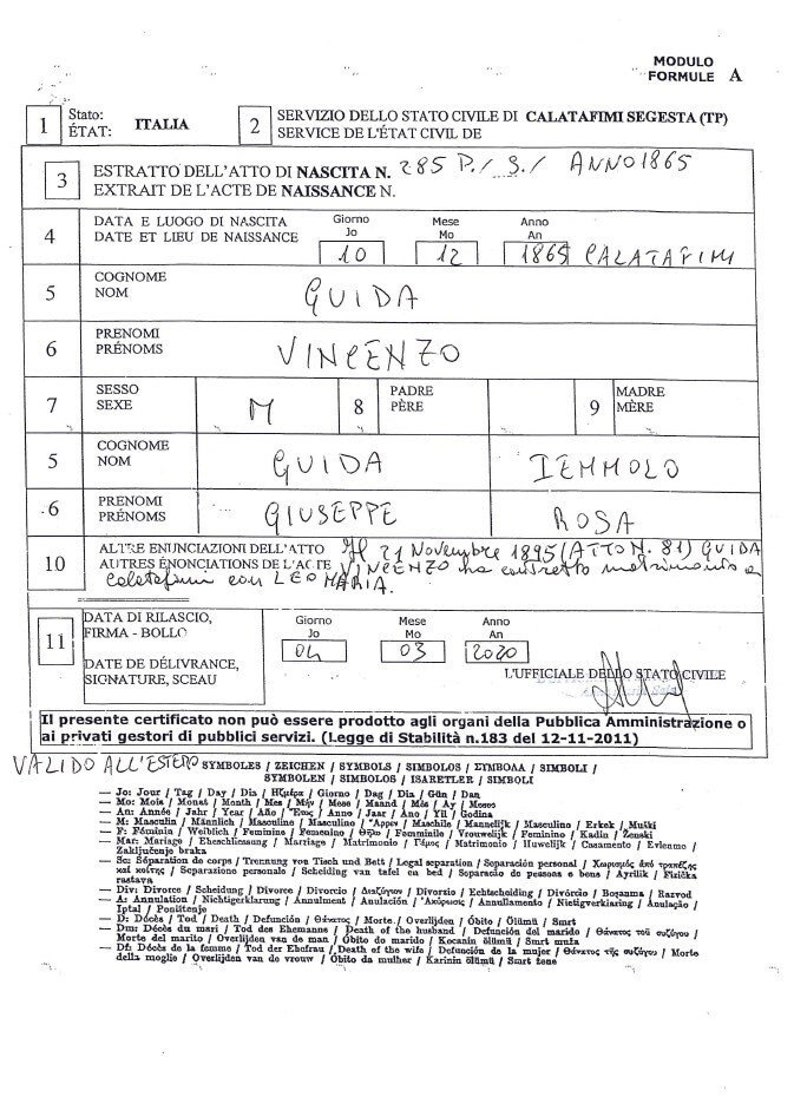 MODULO
FORMULE A
1 Stato: ITALIA
ÉTAT:
2 SERVIZIO DELLO STATO CIVILE DI CALATAFIMI SEGESTA (TP)
SERVICE DE L'ÉTAT CIVIL DE
3 ESTRATTO DELL'ATTO DI NASCITA N. 285 P./ S./ ANNO 1865
EXTRAIT DE L'ACTE DE NAISSANCE N.
4 DATA E LUOGO DI NASCITA
DATE ET LIEU DE NAISSANCE
Giorno Mese Anno
Jo Mo An
10 12 1865 CALATAFIMI
5 COGNOME
NOM
GUIDA
6 PRENOMI
PRÉNOMS
VINCENZO
7 SESSO
SEXE
M
8 PADRE
PÈRE
9 MADRE
MÈRE
5 COGNOME
NOM
GUIDA IEMMOLO
6 PRENOMI
PRÉNOMS
GIUSEPPE ROSA
10 ALTRE ENUNCIAZIONI DELL'ATTO Il 21 Novembre 1895 (ATTO N. 81) GUIDA
AUTRES ÉNONCIATIONS DE L'ACTE VINCENZO ha contratto matrimonio a
Calatafimi con LEO MARIA.
11 DATA DI RILASCIO,
FIRMA - BOLLO
DATE DE DÉLIVRANCE,
SIGNATURE, SCEAU
Giorno Mese Anno
Jo Mo An
04 03 2020
L'UFFICIALE DELLO STATO CIVILE
Il presente certificato non può essere prodotto agli organi della Pubblica Amministrazione o
ai privati gestori di pubblici servizi. (Legge di Stabilità n.183 del 12-11-2011)
VALIDO ALL'ESTERO
SYMBOLES / ZEICHEN / SYMBOLS / SIMBOLOS / ΣΥΜΒΟΛΑ / SIMBOLI /
SYMBOLEN / SIMBOLOS / ISARETLER / SIMBOLI
— Jo: Jour / Tag / Day / Dia / Ημέρα / Giorno / Dag / Dia / Gün / Dan
— Mo: Mois / Monat / Month / Mes / Μήν / Mese / Maand / Mês / Ay / Mesec
— An: Année / Jahr / Year / Año / Έτος / Anno / Jaar / Ano / Yil / Godina
— M: Masculin / Männlich / Masculine / Masculino / Άρρεν / Maschile / Mannelijk / Masculino / Erkek / Muški
— F: Féminin / Weiblich / Feminine / Femenino / Θήλυ / Femminile / Vrouwelijk / Feminino / Kadin / Ženski
— Mar: Mariage / Eheschliessung / Marriage / Matrimonio / Γάμος / Matrimonio / Huwelijk / Casamento / Evlenme /
Zaključenje braka
— Sc: Séparation de corps / Trennung von Tisch und Bett / Legal separation / Separación personal / Χωρισμός από τραπέζης
και κοίτης / Separazione personale / Scheiding van tafel en bed / Separação de pessoas e bens / Ayrilik / Fizička
rastava
— Div: Divorce / Scheidung / Divorce / Divorcio / Διαζύγιον / Divorzio / Echtscheiding / Divórcio / Boşanma / Razvod
— A: Annulation / Nichtigerklarung / Annulment / Anulación / Ακύρωσις / Annullamento / Nietigverklaring / Anulação /
Iptal / Poništenje
— D: Décès / Tod / Death / Defunción / Θάνατος / Morte / Overlijden / Óbito / Ölümü / Smrt
— Dm: Décès du mari / Tod des Ehemanne / Death of the husband / Defunción del marido / Θάνατος του συζύγου /
Morte del marito / Overlijden van de man / Óbito do marido / Kocanin ölümü / Smrt muža
— Df: Décès de la femme / Tod der Ehefrau / Death of the wife / Defunción de la mujer / Θάνατος της συζύγου / Morte
della moglie / Overlijden van de vrouw / Óbito da mulher / Karinin ölümü / Smrt žene